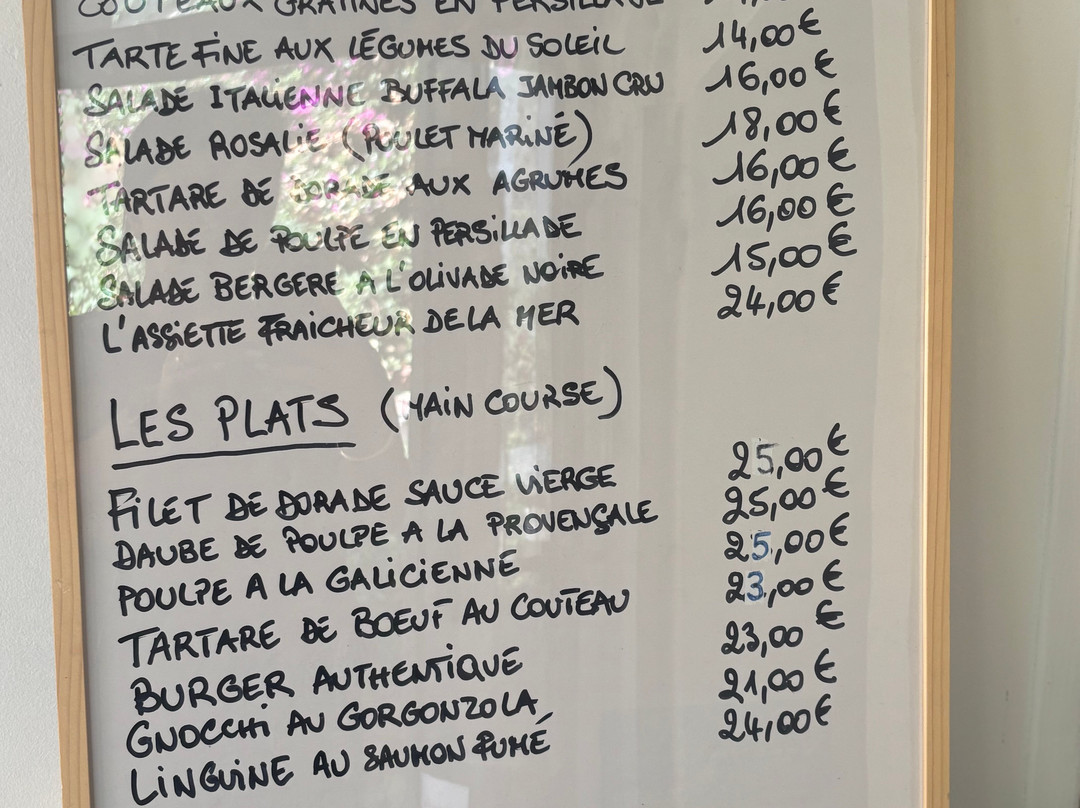 COUTEAUX GRATINÉS EN PERSILLADE
TARTE FINE AUX LÉGUMES DU SOLEIL 14,00€
SALADE ITALIENNE BUFFALA JAMBON CRU 16,00€
SALADE ROSALIE (POULET MARINÉ) 18,00€
TARTARE DE DORADE AUX AGRUMES 16,00€
SALADE DE POULPE EN PERSILLADE 16,00€
SALADE BERGERE A L'OLIVADE NOIRE 15,00€
L'ASSIETTE FRAICHEUR DE LA MER 24,00€
LES PLATS (MAIN COURSE)
FILET DE DORADE SAUCE VIERGE 25,00€
DAUBE DE POULPE A LA PROVENÇALE 25,00€
POULPE A LA GALICIENNE 25,00€
TARTARE DE BOEUF AU COUTEAU 23,00€
BURGER AUTHENTIQUE 23,00€
GNOCCHI AU GORGONZOLA 21,00€
LINGUINE AU SAUMON FUMÉ 24,00€